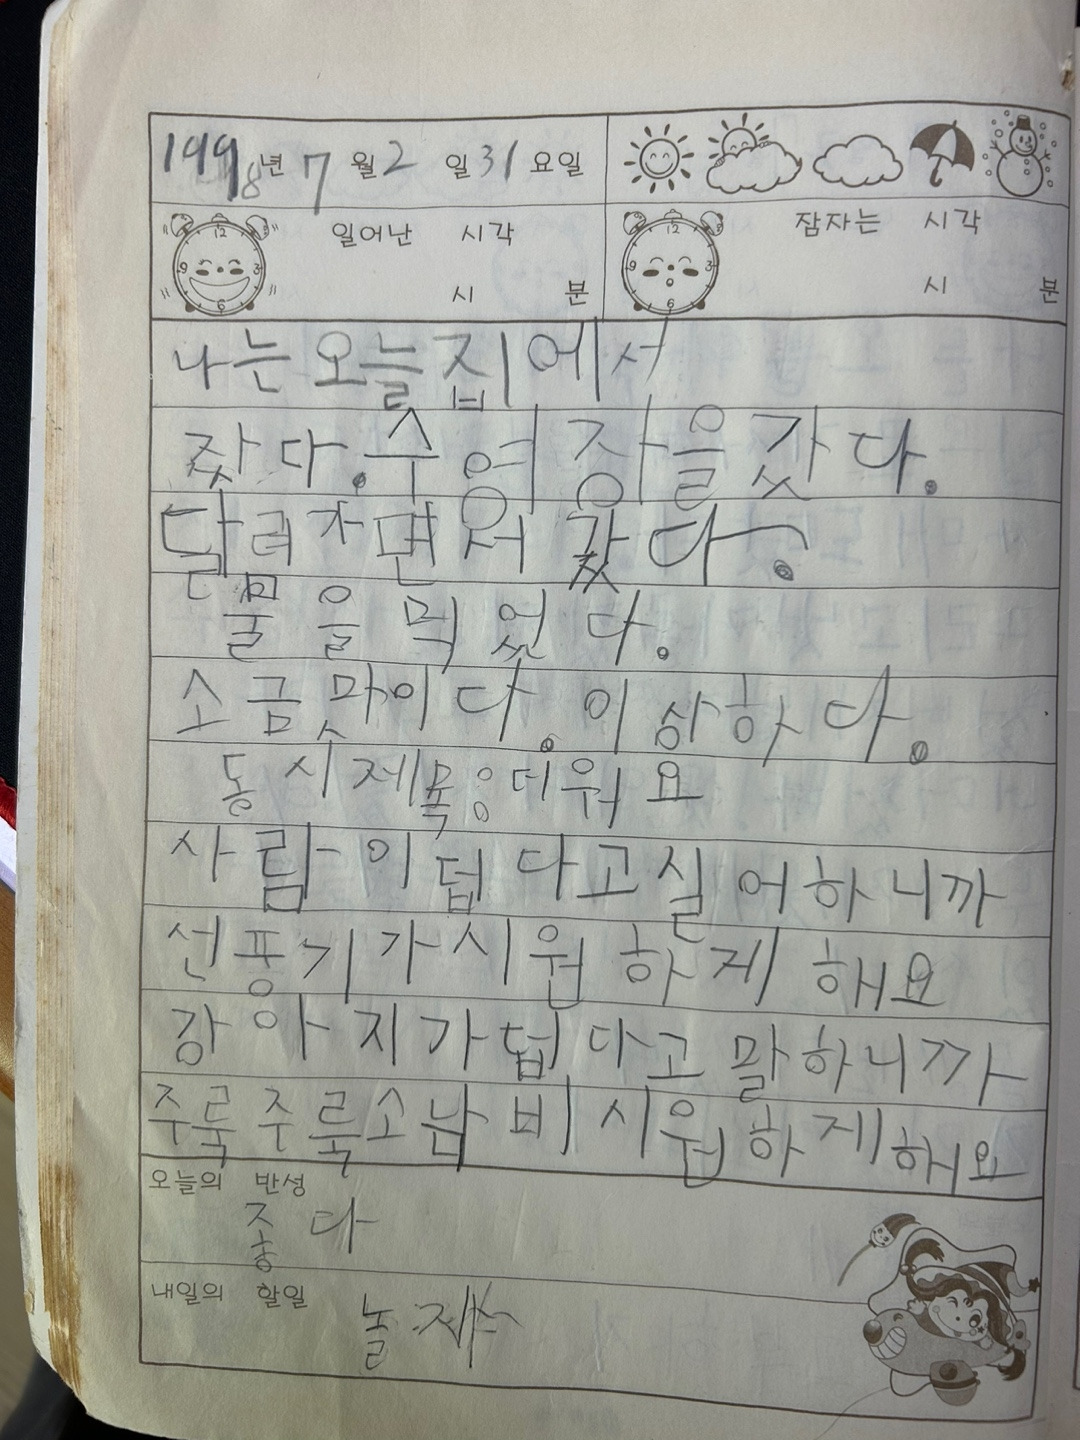 1998년 7월 2일 31요일
일어난 시각
시 분
잠자는 시각
시 분
나는 오늘 집에서
잤다. 수영장을 갔다.
달려가면서 갔다.
물을 먹었다.
소금맛이다. 이상하다.
동시제목: 더워요
사람이 덥다고 실어하니까
선풍기가 시원하게 해요
강아지가 덥다고 말하니까
주룩주룩 소낙비 시원하게 해요
오늘의 반성
좋다
내일의 할일
놀자